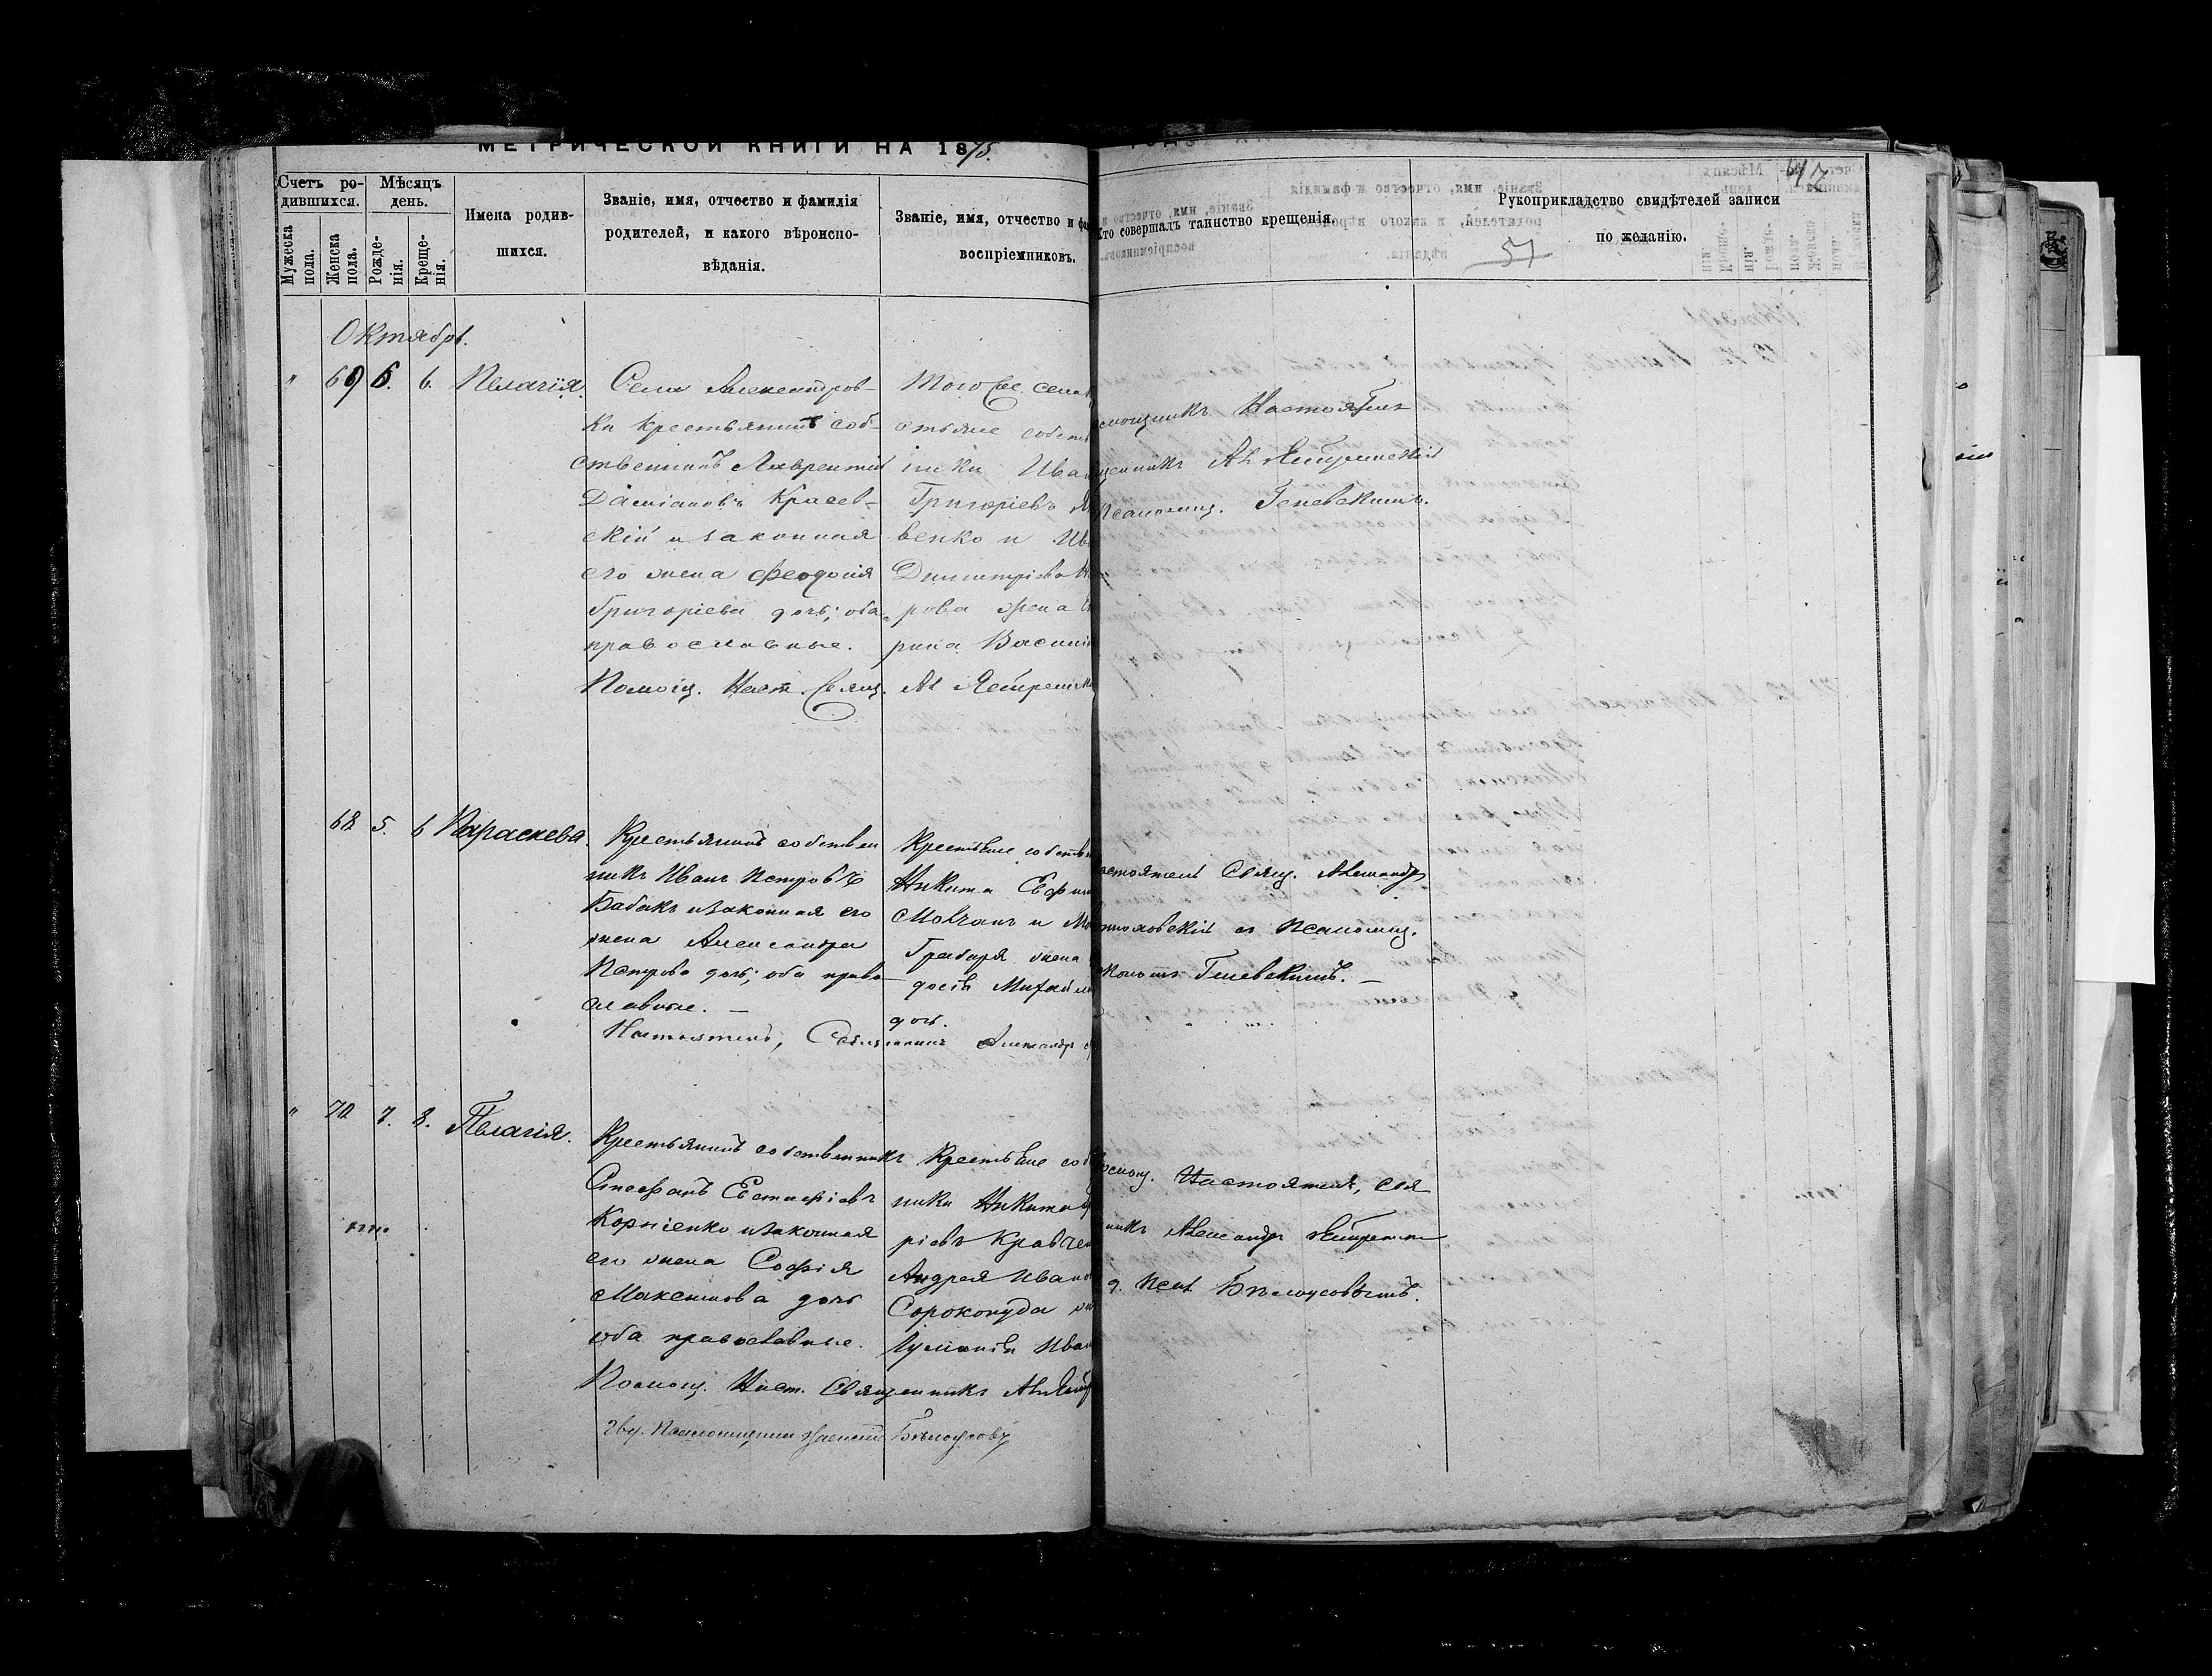 МЕТРИЧЕСКОЙ КНИГИ НА 1875.
Счетъ родившихся.
Мужеска пола.
Женска пола.
Мѣсяцъ день.
Рожденія.
Крещенія.
Имена родившихся.
Званіе, имя, отчество и фамилія
родителей, и какого вѣроиспо-
вѣданія.
Званіе, имя, отчество и
воспріемниковъ.
Кто совершалъ таинство крещенія.
Рукоприкладство свидѣтелей записи
по желанію.
57
Октябрь.
" 69 6. 6. Пелагія.
Села Александров-
ки крестьянинъ соб-
ственникъ Лаврентій
Даміановъ Красев-
скій и законная
его жена Феодосія
Григоріева дочь; оба
православные.
Помощ. Наст. Свящ. Ал Ястрем
Того же села
стьяне собств
ники Ива
Григоріевъ
венко и
Димитріева
рова жена
рина Васил
мощникъ Настоят
щенникъ Ал Ястремскій
Псаломщ. Геневскимъ.
68 5. 6 Параскева.
Крестьянинъ собствен
никъ Иванъ Петровъ
Бабакъ и законная его
жена Александра
Петрова дочь; оба право
славные. —
Настоятель, Священникъ Александръ
Крестьяне собств
Никита Ефим
Мовчанъ и
Грабаря жена
досія Михайл
дочь.
астоятель Свящ. Александръ
съ Псаломщ.
Геневскимъ. —
" 70. 7. 8. Пелагія.
Крестьянинъ собственникъ
Стефанъ Евстафіевъ
Корніенко и законная
его жена Софія
Максимова дочь
оба православные.
Помощ. Наст. Священникъ Ал Ястр
Крестьяне соб
ники Никита
ріевъ Кравчен
Андрея Ивано
Сорокопуда
Гликерія Иван
Помощ. Настоятеля, Свя
никъ Александръ Ястремс
Псал Бѣлоусовымъ.
Бѣлоусовъ